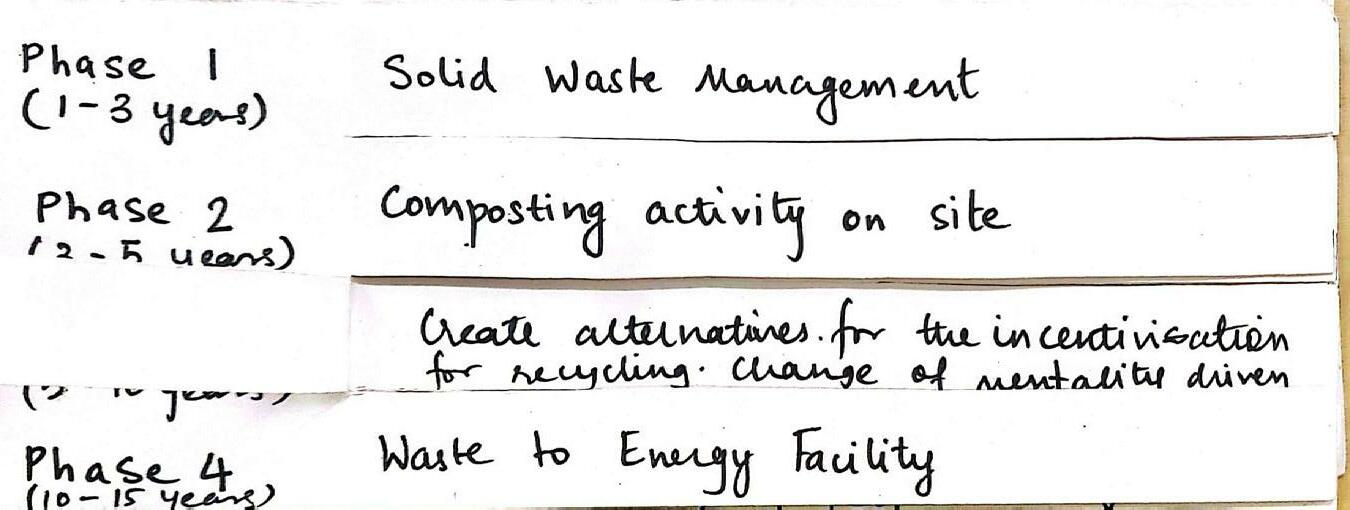 Phase 1
(1-3 years)
Solid Waste Management
Phase 2
(2-5 years)
Composting activity on site
Create alternatives for the incentivisation
for recycling. Change of mentality driven
years)
Phase 4
(10-15 years)
Waste to Energy Facility